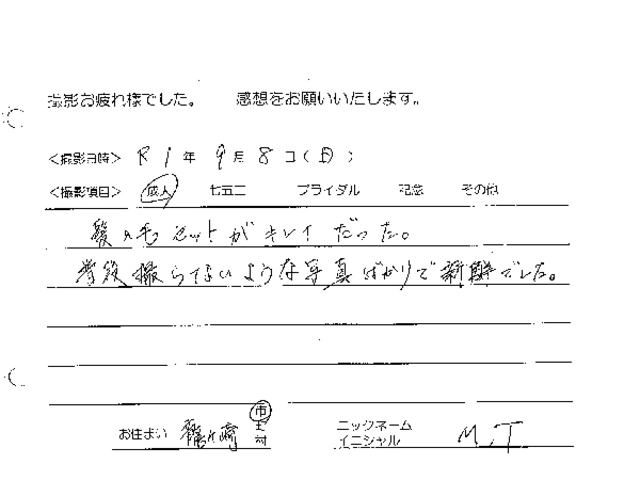 撮影お疲れ様でした。 感想をお願いいたします。
<撮影日時> R1年9月8日(日)
<撮影項目> 成人 七五三 ブライダル 記念 その他
髪の毛セットがキレイだった。
普段撮らないような写真ばかりで新鮮でした。
お住まい 市 区 村 ニックネーム イニシャル M.T